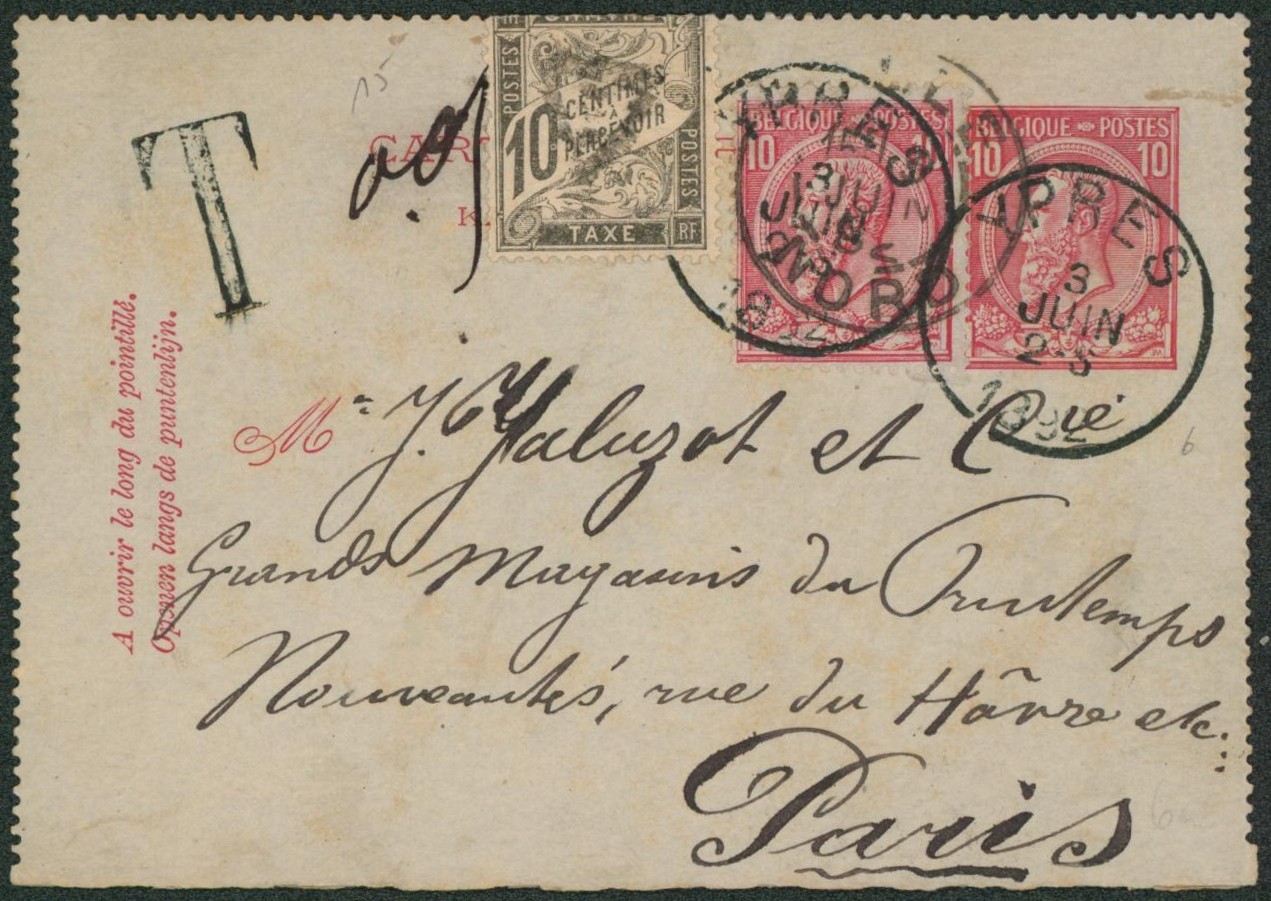 T
15
0.05
CHIFFRE
POSTES
10 CENTIMES
A
PERCEVOIR
POSTES
TAXE RF
CAR
K
BELGIQUE POSTES
10
BELGIQUE POSTES
10 10
YPRES
3
JUIN
YPRES
3
JUIN
2-S
1892
A ouvrir le long du pointillé.
Openen langs de puntenlijn.
M
J. Jaluzot et Cie
Grands Magasins du Printemps
Nouveautés, rue du Hâvre etc.
Paris
6